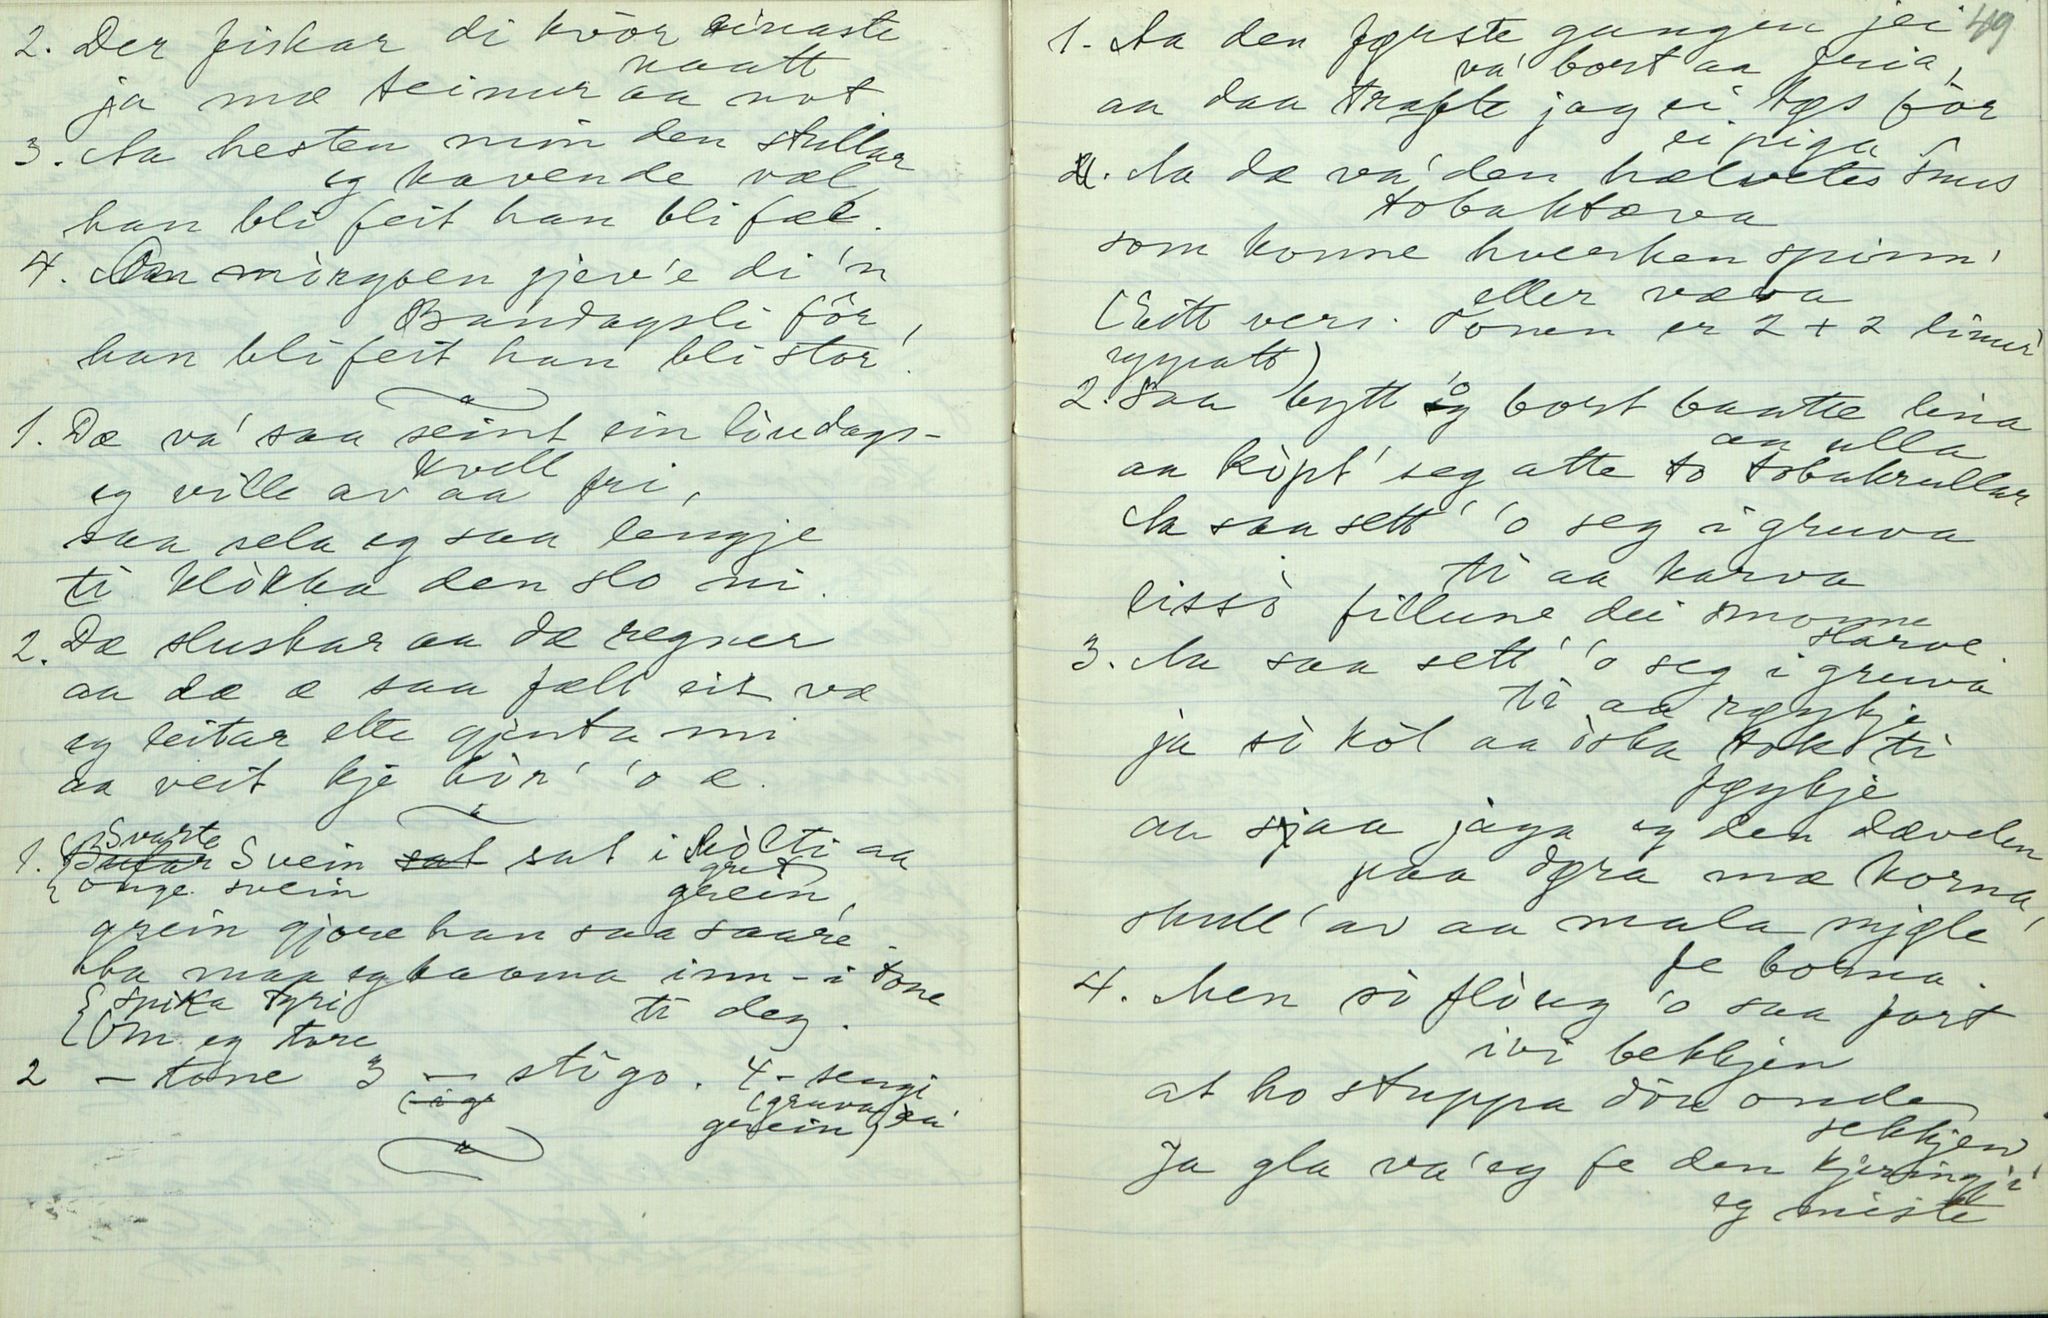 2. Der fiskar di kvòr einaste
naatt
ja mæ teinur aa not
3. Aa hesten min den stullar
eg havende væl
han bli feit han bli fæl.
4. Om mòrgoen gjev'e di 'n
Bandagsli fòr,
han bli feit han bli stor'.
1. Dæ va' saa seint ein lòudags-
kvell
eg ville av aa fri,
saa sela eg saa lengje
ti klòkka den slo ni.
2. Dæ sluskar aa dæ regner
aa dæ æ saa fælt eit væ
eg leitar ette gjenta mi
aa veit kje hòr' 'o æ.
Svarte
1. Svein sat sat i hòlti aa
onge svein
gret
grein,
grein gjore han saa saare.
Ka maa eg kaoma inn-i tone
ti deg.
Spika tyri
Om eg tore
2 – tone 3 – stigo. 4 – sengi
(gruva
grein)
49
1. Aa den første gangen jei
va' bort aa fria,
aa daa trafte jag ei tøs fòr
ei piga
Aa dæ va' den hælvetes Snus
tobaktæva
som konne hverken spinn'
eller væva
(Eitt vers. Tonen er 2 + 2 linur
uppatt)
2. Saa bytt 'o bort baate lina
aa ulla
aa kòpt' seg atte to tobakrullar
Aa saa sett' 'o seg i gruva
ti aa karva
lissò fillune dei monne
slarve.
3. Aa saa sett' 'o seg i gruva
ti aa røykje
ja sò kòl aa òska tok ti
føykje
aa sjaa jaga eg den dævelen
paa døra mæ korna,
skull' av aa mala mjøle
fe bonna.
4. Men sò flòug 'o saa fort
ivi bekkjen
at ho stuppa dòu onde
sekkjen
Ja gla va' eg fe den kjeringji
eg miste